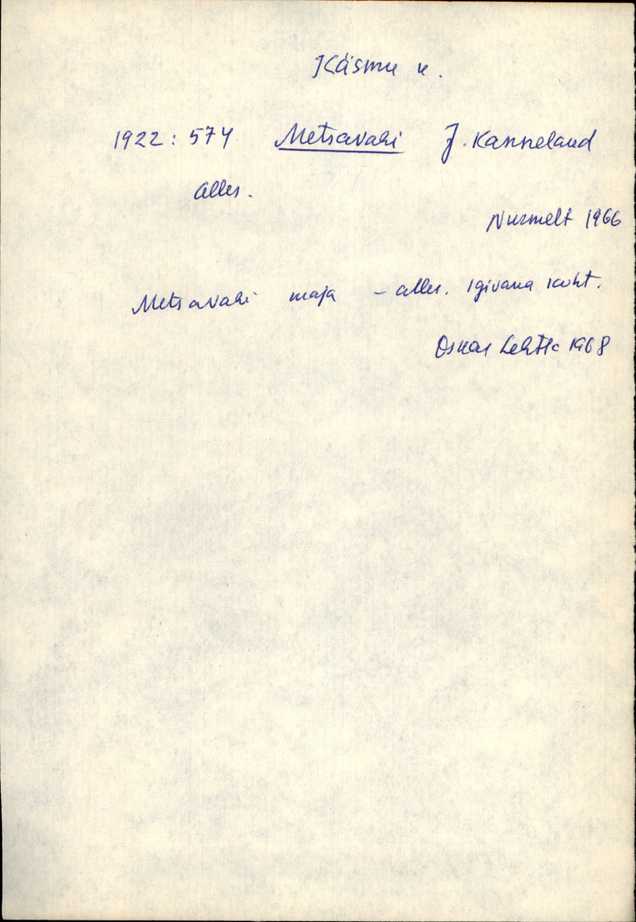 Käsmu k.
1922: 574 Metsavahi J. Kanneland
alles.
Nurmelt 1966
Metsavahi maja - alles. Igivana koht.
Oskar 1968